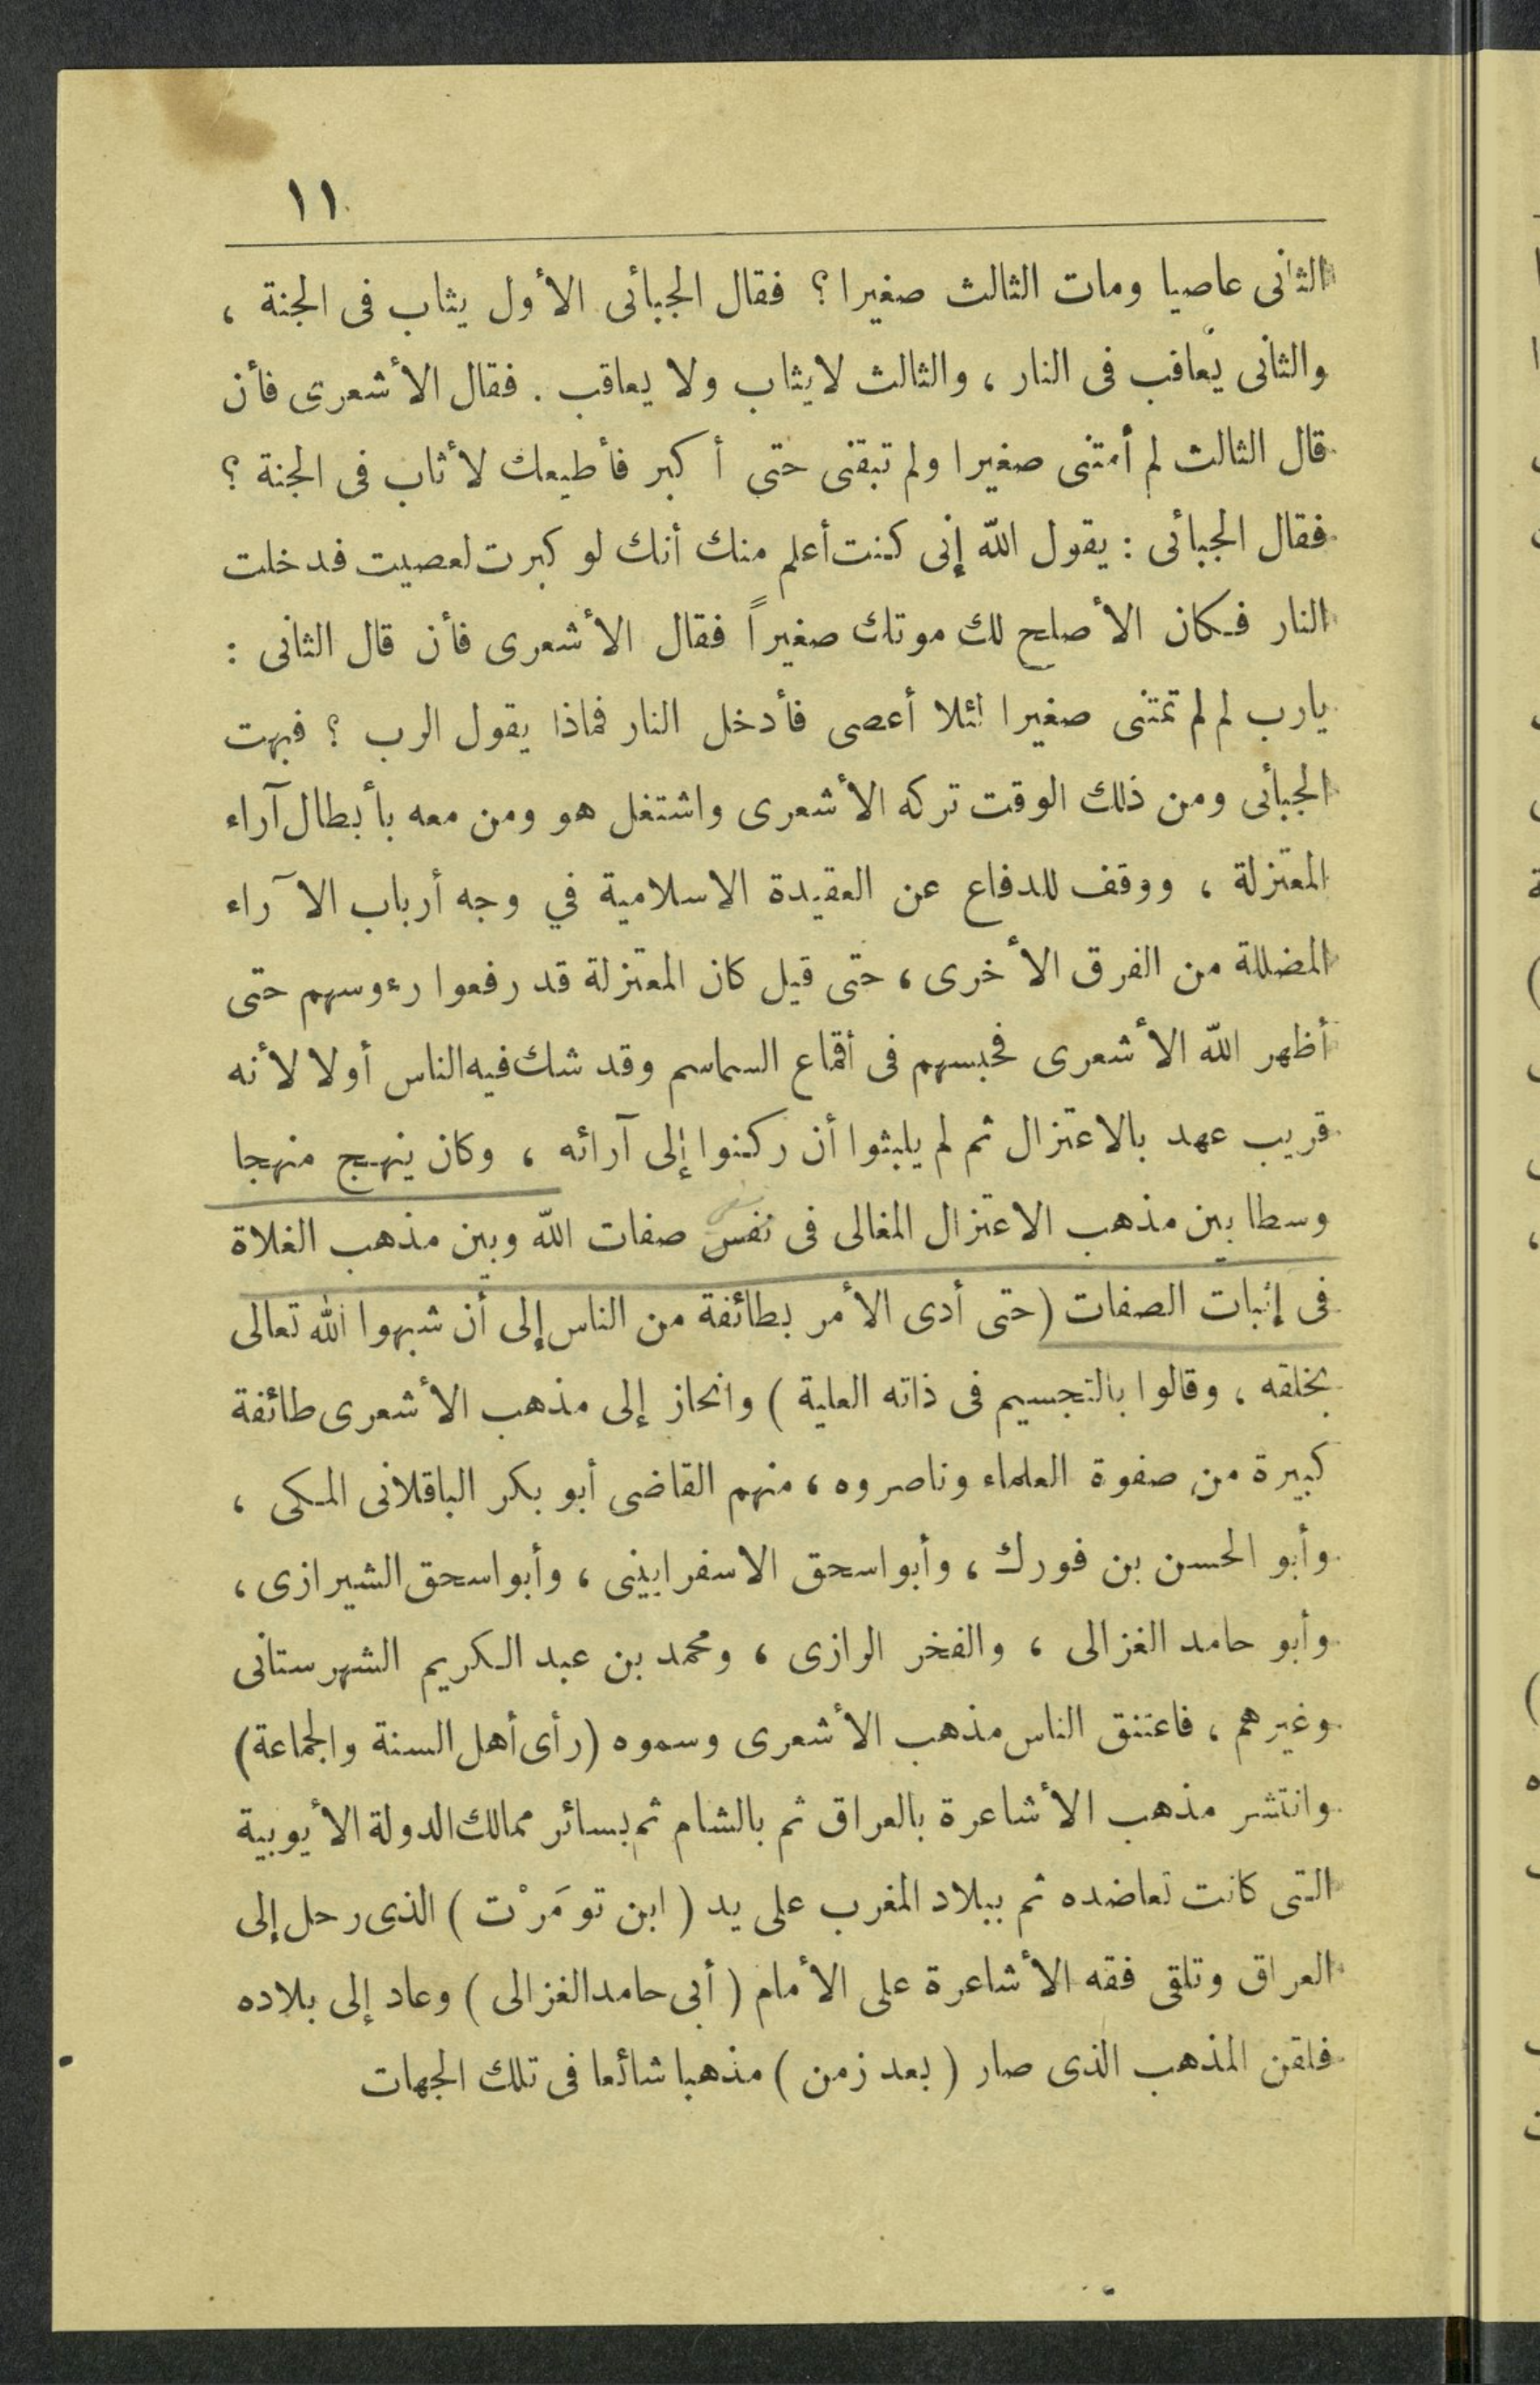 ١١
الثانى عاصيا ومات الثالث صغيرا ؟ فقال الجبائى الأول يثاب فى الجنة ،
والثانى يُعاقب فى النار ، والثالث لايثاب ولا يعاقب . فقال الأشعرى فأن
قال الثالث لم أمتنى صغيرا ولم تبقنى حتى أكبر فأطيعك لأثاب فى الجنة ؟
فقال الجبائى : يقول الله إنى كنت أعلم منك أنك لو كبرت لعصيت فدخلت
النار فكان الأصلح لك موتك صغيراً فقال الأشعرى فأن قال الثانى :
يارب لم لم تمتنى صغيرا لئلا أعصى فأدخل النار فماذا يقول الرب ؟ فبهت
الجبأئى ومن ذلك الوقت تركه الأشعرى واشتغل هو ومن معه بأبطال آراء
المعتزلة ، ووقف للدفاع عن العقيدة الاسلامية في وجه أرباب الآراء
المضللة من الفرق الأخرى ، حتى قيل كان المعتزلة قد رفعوا رءوسهم حتى
أظهر الله الأشعرى فحبسهم فى أقماع السماسم وقد شك فيه الناس أولا لأنه
قريب عهد بالاعتزال ثم لم يلبثوا أن ركنوا إلى آرائه ، وكان ينهج منهجا
وسطا بين مذهب الاعتزال المغالى فى نفس صفات الله وبين مذهب الغلاة
فى إثبات الصفات (حتى أدى الأمر بطائفة من الناس إلى أن شبهوا الله تعالى
بخلقه ، وقالوا بالتجسيم فى ذاته العلية ) وانحاز إلى مذهب الأشعرى طائفة
كبيرة من صفوة العلماء وناصروه ، منهم القاضى أبو بكر الباقلانى المكى ،
وأبو الحسن بن فورك ، وأبو اسحق الاسفرايينى ، وأبو اسحق الشيرازى ،
وأبو حامد الغزالى ، والفخر الرازى ، ومحمد بن عبد الكريم الشهرستانى
وغيرهم ، فاعتنق الناس مذهب الأشعرى وسموه (رأى أهل السنة والجماعة)
وانتشر مذهب الأشاعرة بالعراق ثم بالشام ثم بسائر ممالك الدولة الأيوبية
التى كانت تعاضده ثم ببلاد المغرب على يد ( ابن تومَرْت ) الذى رحل إلى
العراق وتلقى فقه الأشاعرة على الأمام ( أبى حامد الغزالى ) وعاد إلى بلاده
فلقن المذهب الذى صار ( بعد زمن ) مذهبا شائعا فى تلك الجهات